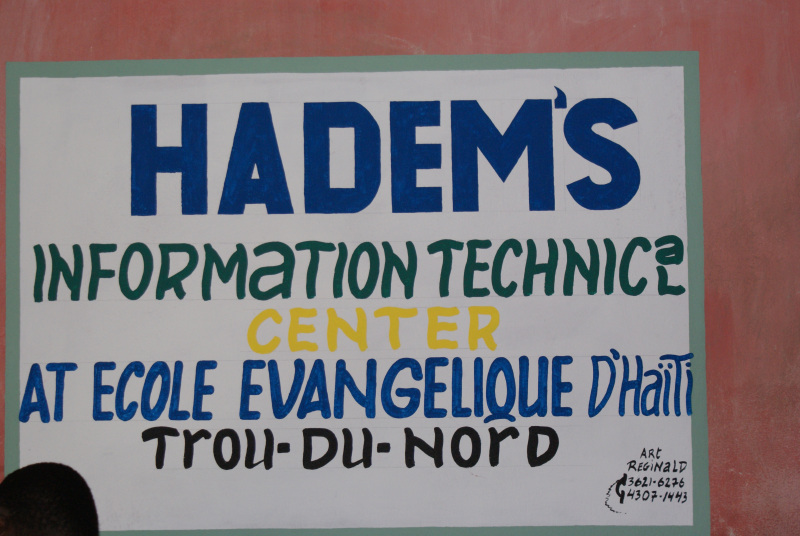 HADEM'S
INFORMATION TECHNICAL
CENTER
AT ECOLE EVANGELIQUE D'Haïti
Trou-Du-Nord
Art
REGINALD
3621-6276
4307-1443